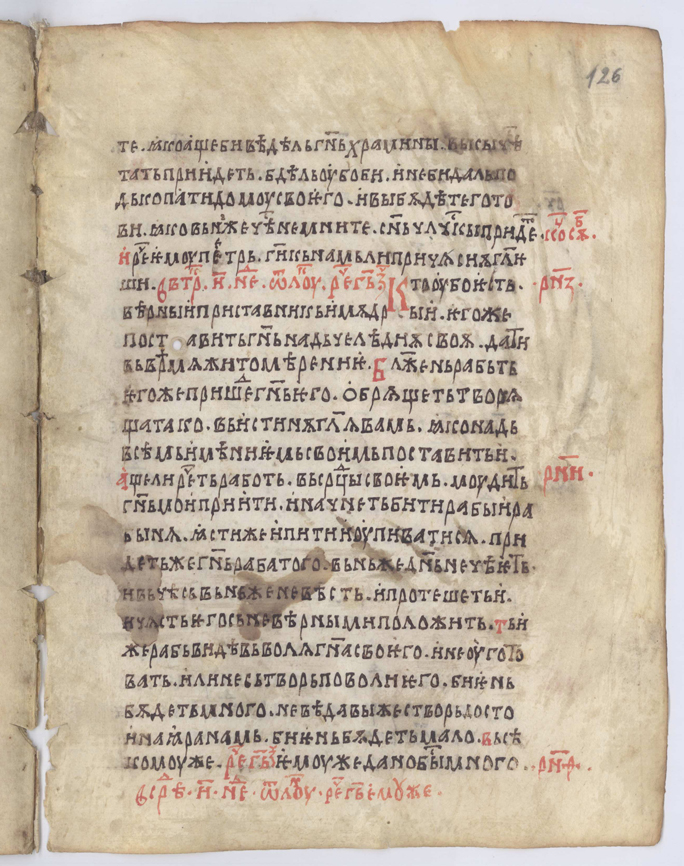 126
те · ꙗко аще би вѣдѣль гн҃ь храмины · вь кы чⷭ҇ь
тать прїидеть · бдѣль оубо би · и не би даль по
дькопати домоу своѥго · и вы бѫдѣте гото
ви · ꙗко вьньже чⷭ҇ь не мните · сн҃ь чл҃чьскы приде ·
и рⷱ҇е ѥмоу петрь · гн҃ кь намь ли притчѫ сиѫ гл҃ѥ
ши · вьтрⷪ҇ · и҃ · нⷣе · ѿ лоу · рⷱ҇е гь҃ · Кто оубо ѥсть ·
вѣрныи приставникь и мѫдрыи · ѥгоже
поставить гн҃ь надь челѣдиѫ своѫ · даати
вь врѣмѧ житомѣрениѥ · Блⷤ҇ень рабь ть
ѥгоже пришⷣь гн҃ь ѥго · обрѧщеть твор
ѧща тако · вь истинѫ гл҃ѫ вамь · ꙗко надь
всѣмь имѣниѥмь своимь поставить и ·
аще ли рⷱ҇еть рабь ть · вь срⷣци своѥмь · моудить
гн҃ь мои прїити · и начнеть бити рабы и ра
бынѧ · ꙗсти же и пити и оупиватисѧ · при
деть же гн҃ь раба того · вь ньже дн҃ь не чѣѥть ·
и вь чⷭ҇ь вь ньже не вѣсть · и протешеть и ·
и чѫсть ѥго сь невѣрными положить · ть и
же рабь вѣдѣвь волѫ гн҃а своѥго · и не оугото
вавь · или не сьтворь по воли ѥго · биѥнь
бѫдеть много · не вѣдавы же створь досто
инаꙗ ранамь · биѥнь бѫдеть мало · вьсѣ
комоу же · рⷱ҇е гь҃ · ѥмоуже дано быⷭ҇ много ·
вьсрⷣѣ · и҃ · нⷣе · ѿ лоу · рⷱ҇е гь҃ · ѥмоуже ·
рн҃з ·
рн҃и ·
рн҃ѳ ·